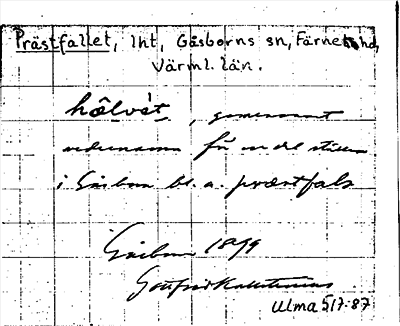 Prästfallet, lht, Gåsborns sn, Färnebo hd,
Värml. län.
hôlvét, gemensamt
för en del ställen
i Gåsborn bl. a. prästfals
Gåsborn 1899
Gottfrid Kallstenius
Ulma 517:87